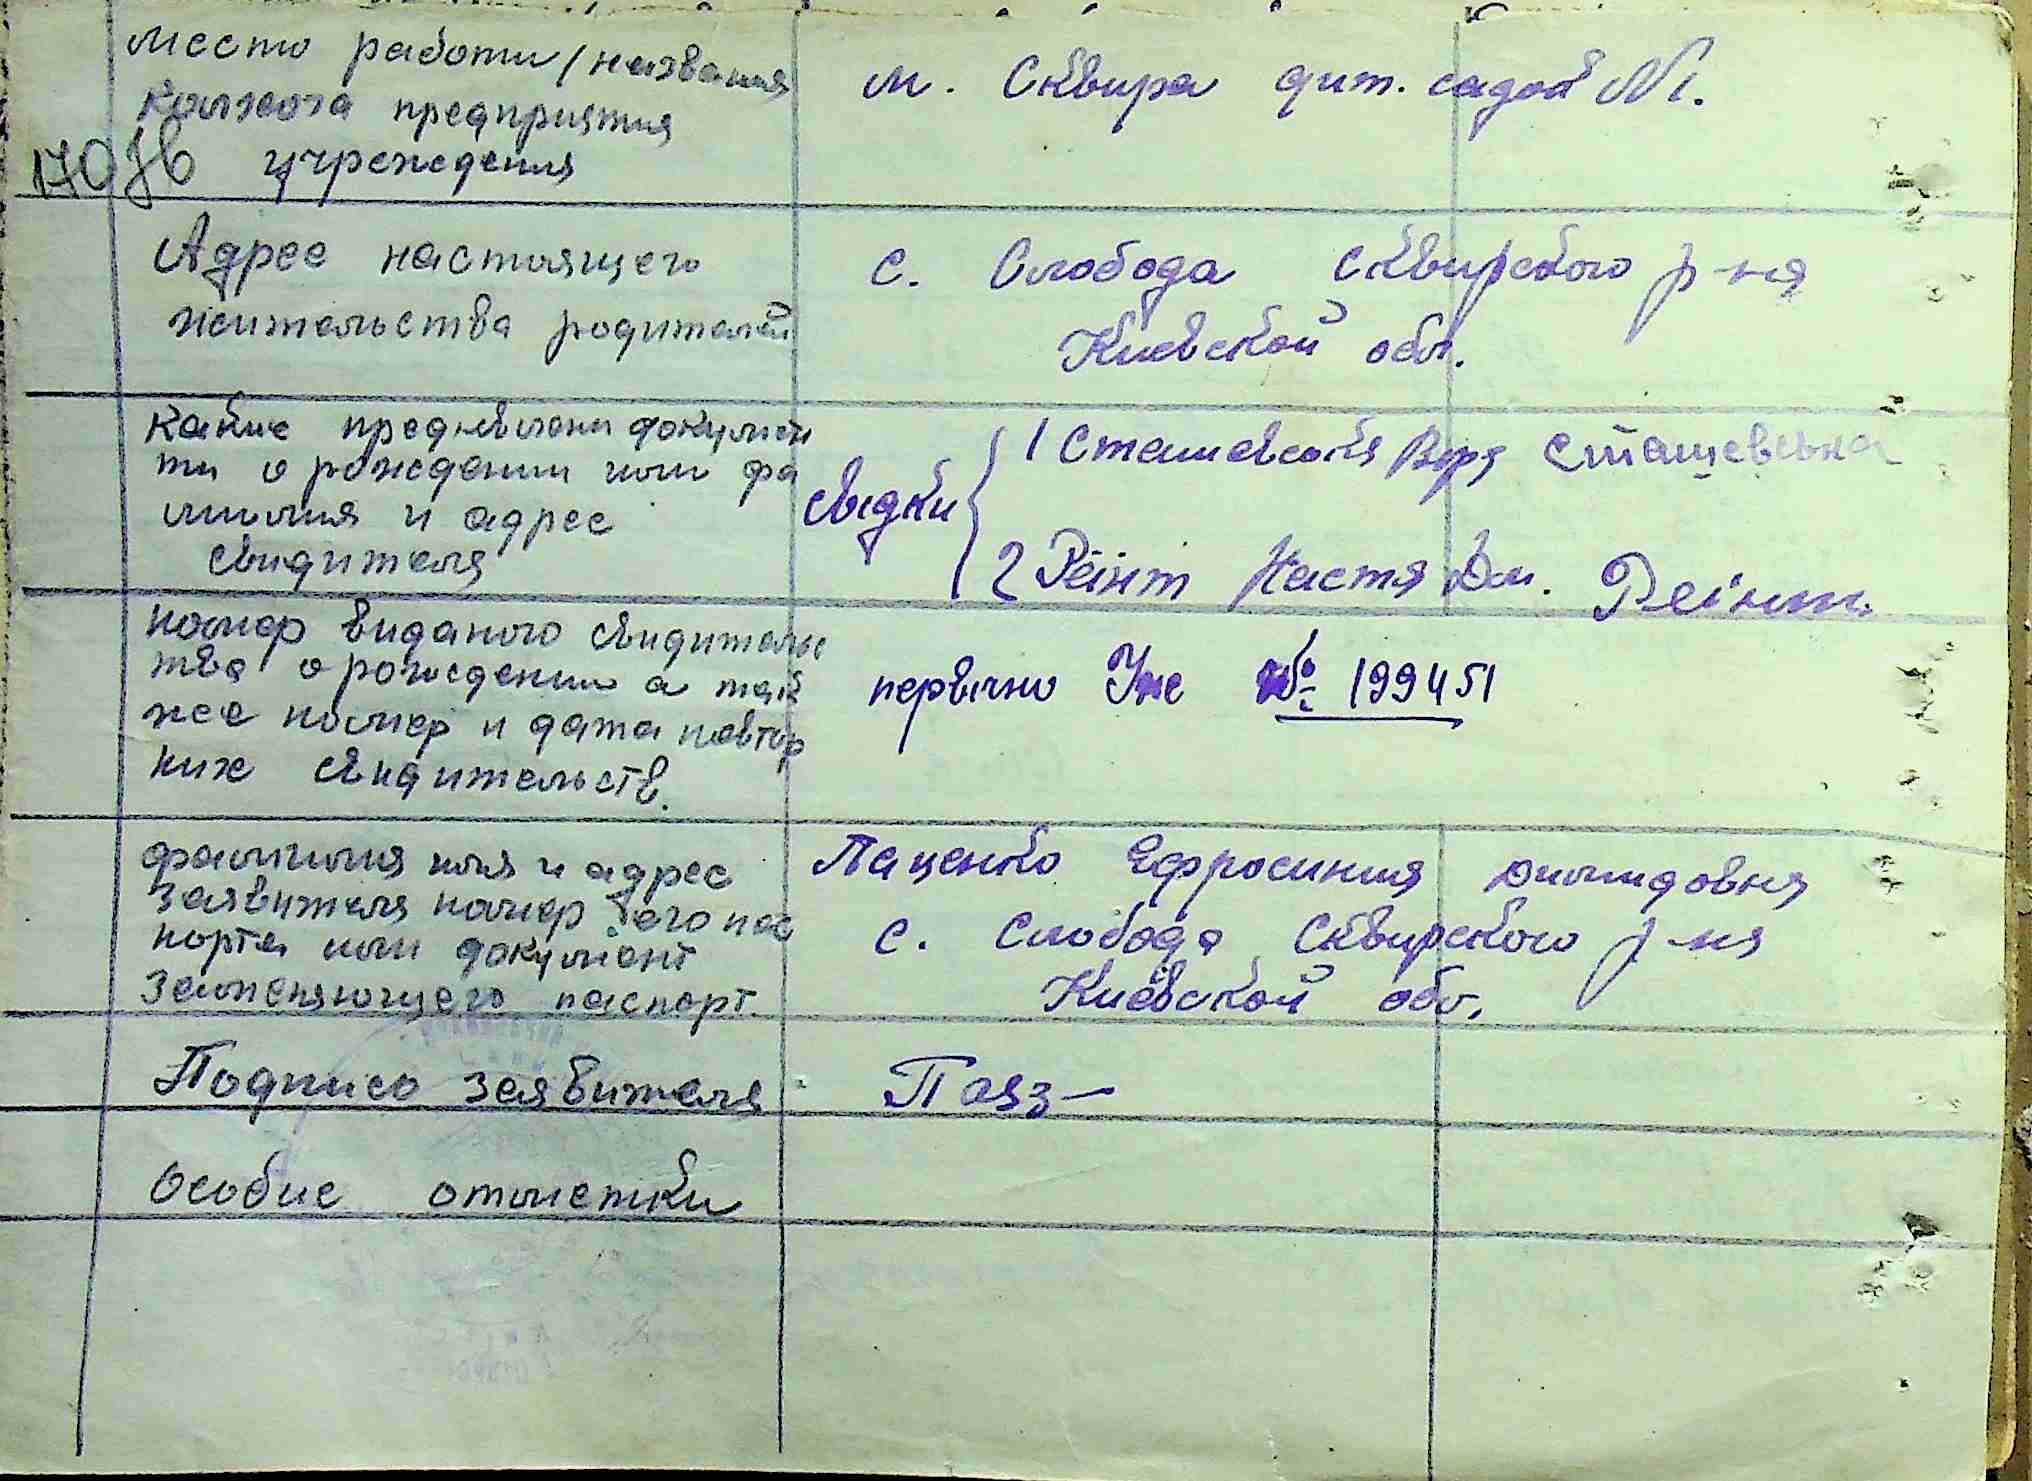 место работи/названия
колхоза предприятия
учреждения
м. Сквира дит. садок №1.
170
Адрес настоящего
жительства родителей
с. Слобода Сквирского р-ня
Киевской обл.
какие предъявлени докумен
ти о рождении или фа
милия и адрес
свидителя
свидки
1 Сташевская Вера Сташевська
2 Реінт Настя Дм. Реінт
номер виданого свидительс
тва о рождении а так
же номер и дата повтор
них свидительств.
первично Уже № 199451
фамилия имя и адрес
заявителя номер его пас
порта или документ
заменяющего паспорт.
Паценко Ефросиния Диомидовня
с. Слобода Сквирского р-ня
Киевской обл.
Подпись заявителя
Особие отметки